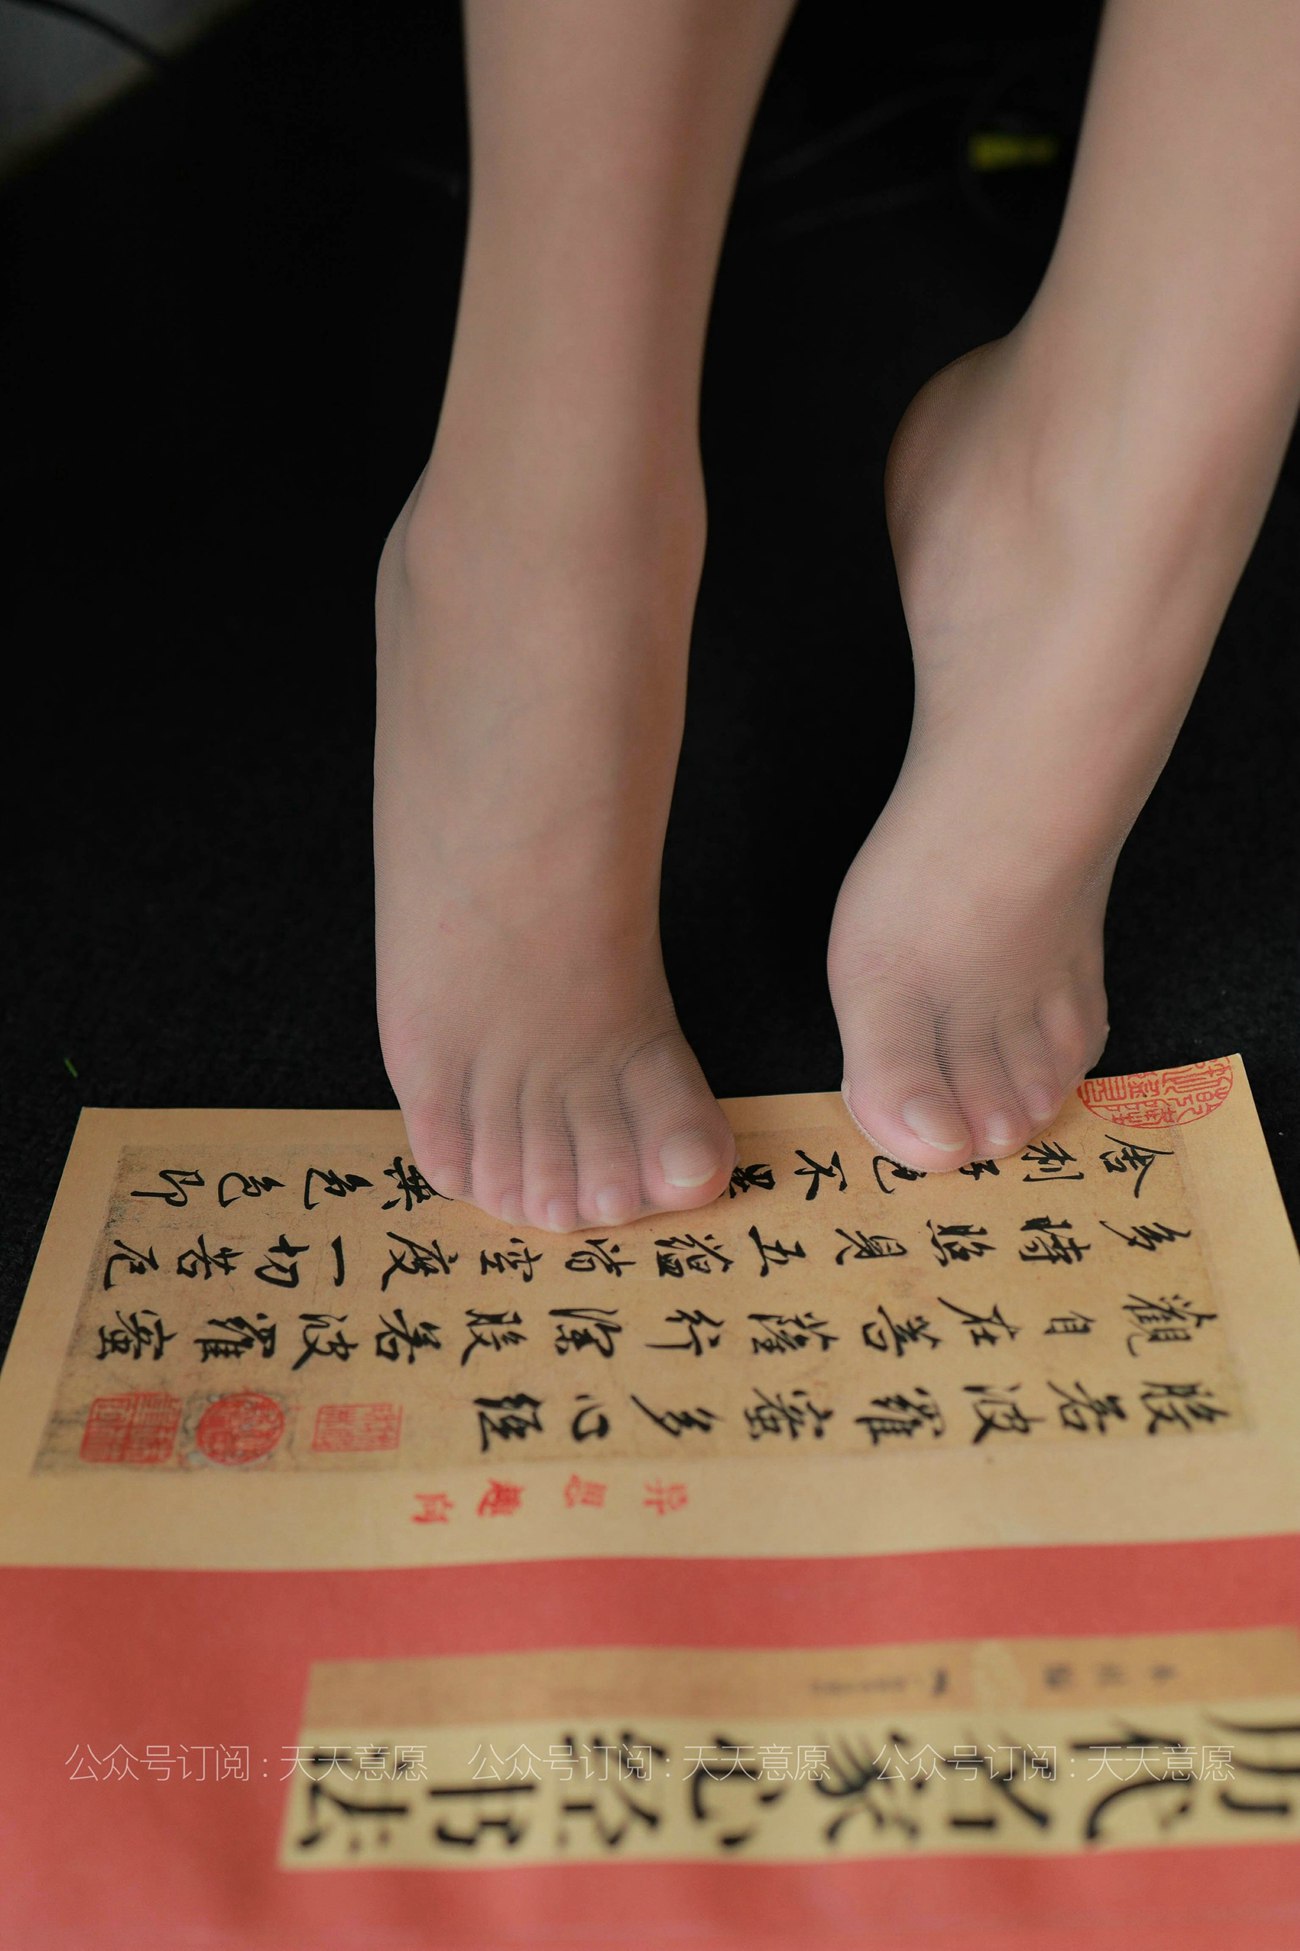 般若波羅蜜多心經
觀自在菩薩行深般若波羅蜜
多時照見五蘊皆空度一切苦厄
舍利子色不異
異色色即
历代名家心经书法
公众号订阅：天天意愿 公众号订阅：天天意愿 公众号订阅：天天意愿